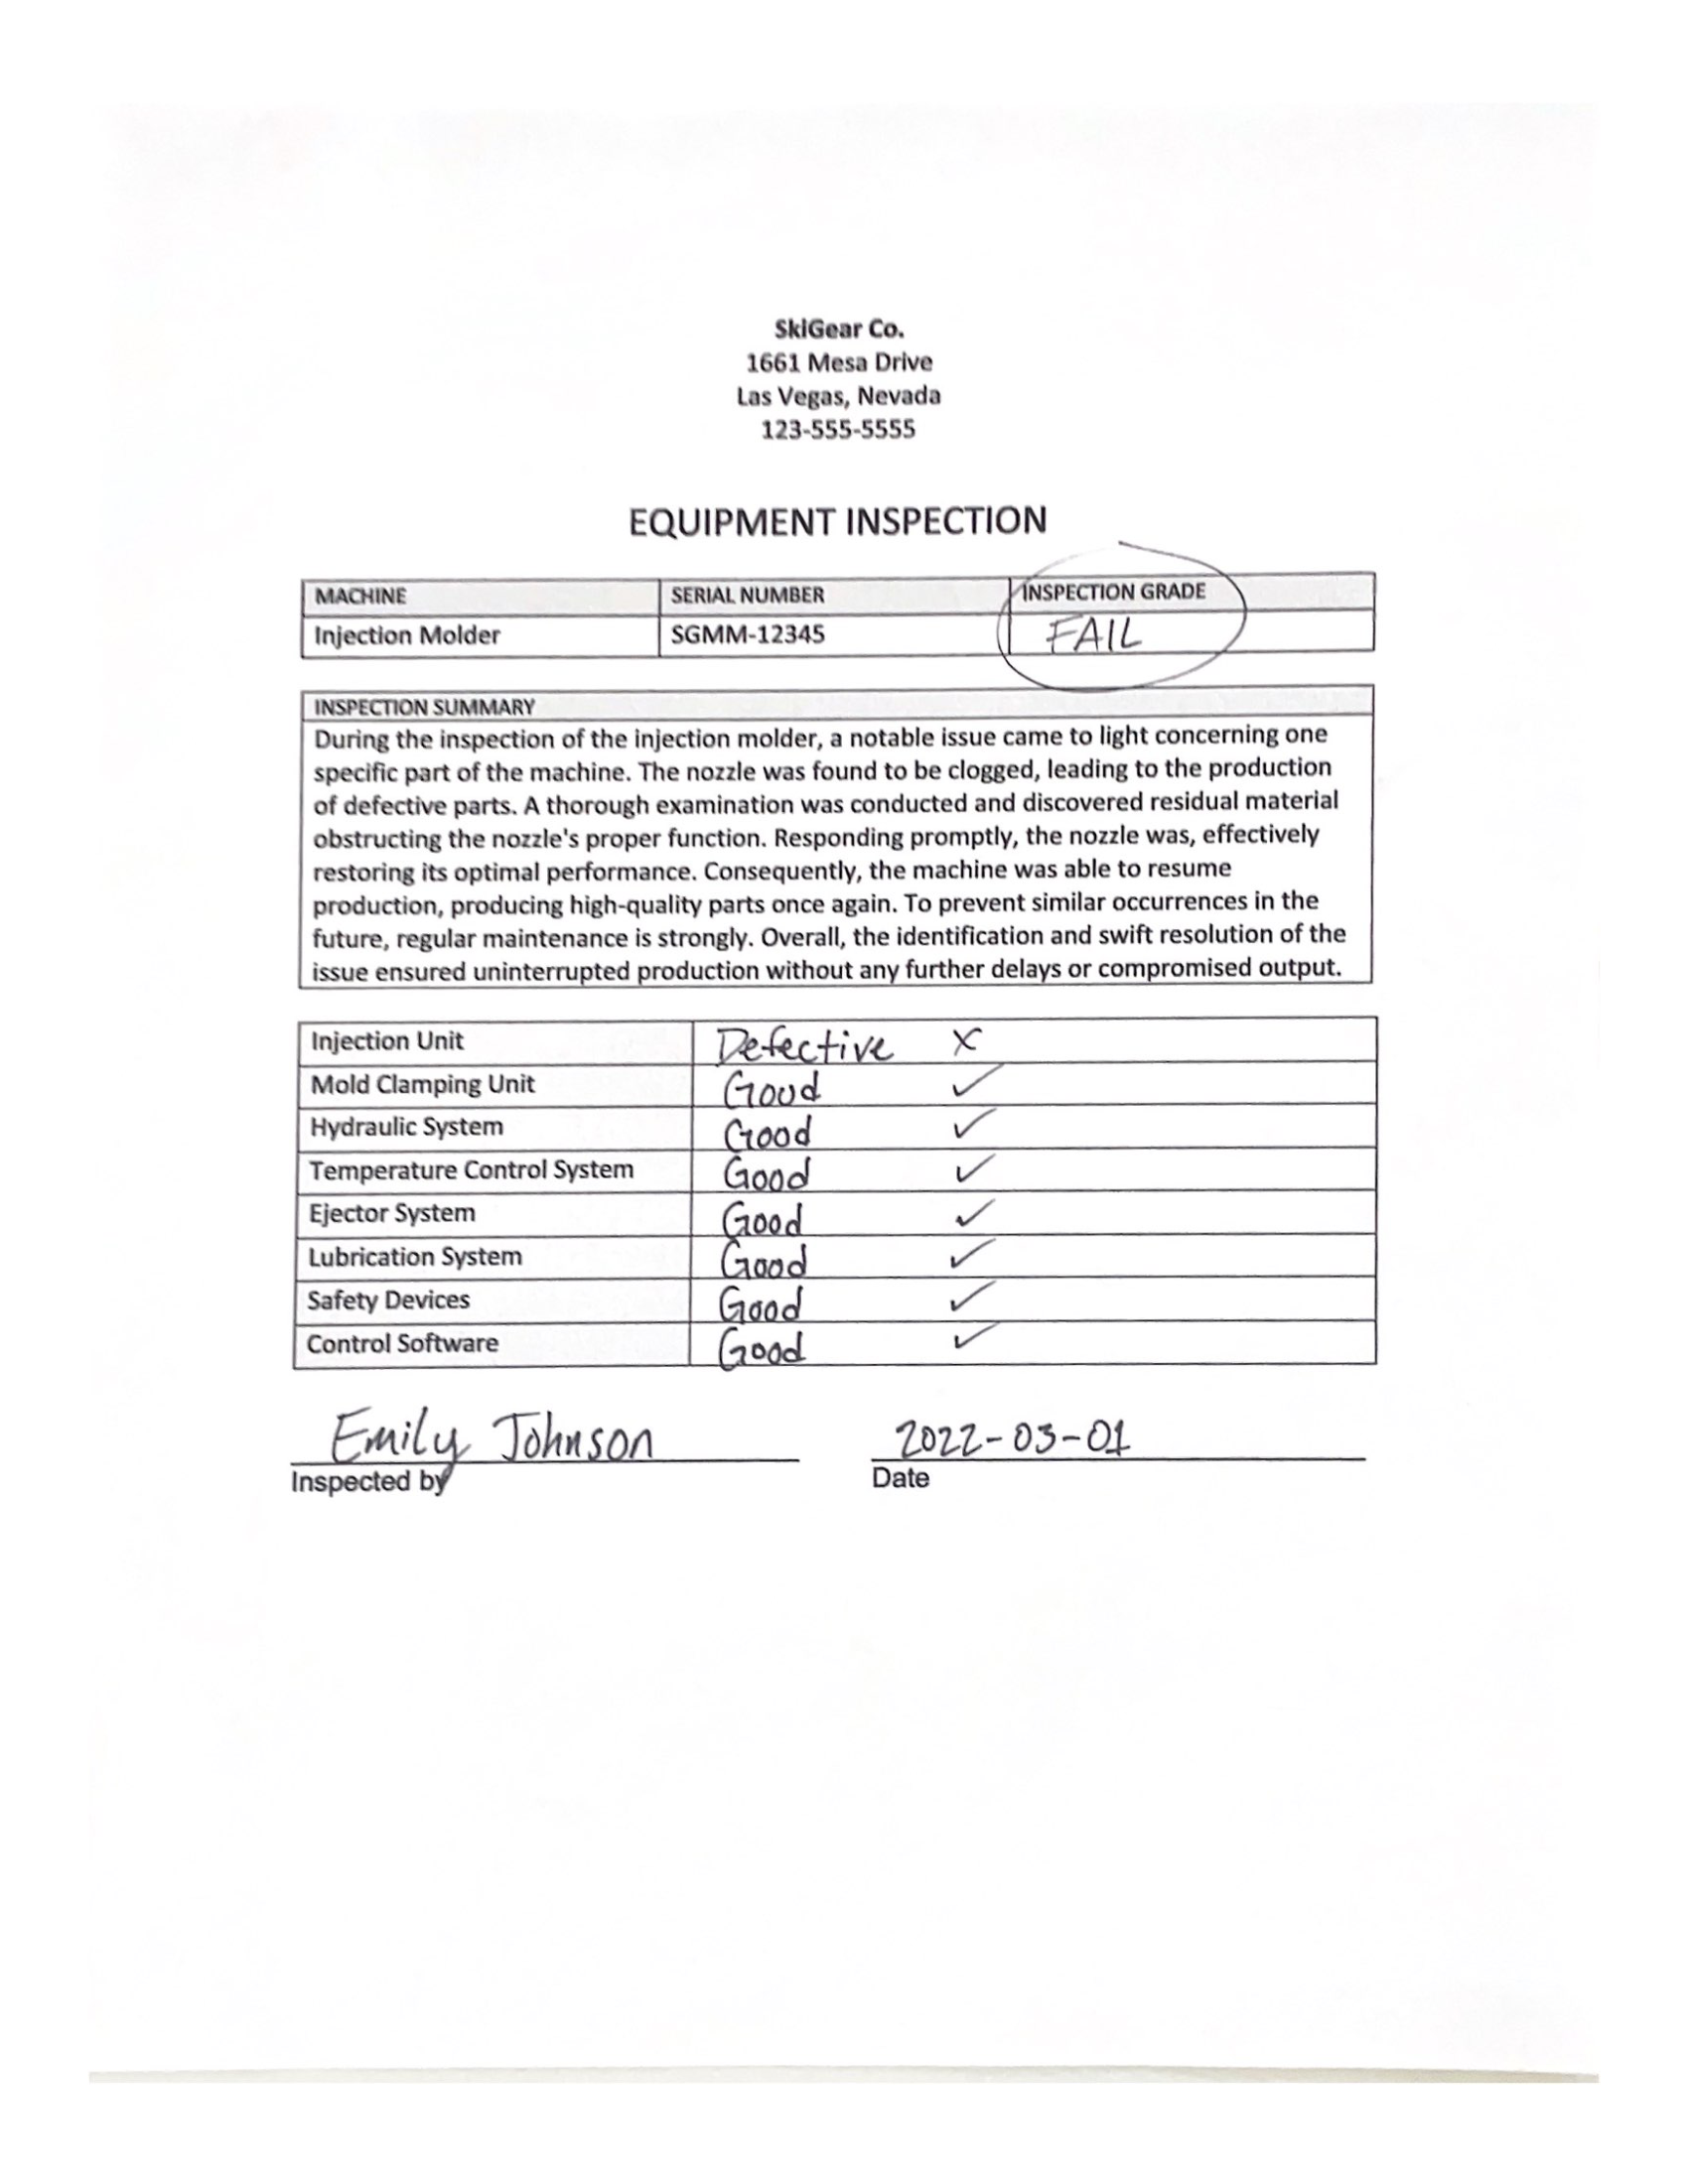 SkiGear Co.
1661 Mesa Drive
Las Vegas, Nevada
123-555-5555
EQUIPMENT INSPECTION
MACHINE SERIAL NUMBER INSPECTION GRADE
Injection Molder SGMM-12345 FAIL
INSPECTION SUMMARY
During the inspection of the injection molder, a notable issue came to light concerning one
specific part of the machine. The nozzle was found to be clogged, leading to the production
of defective parts. A thorough examination was conducted and discovered residual material
obstructing the nozzle's proper function. Responding promptly, the nozzle was, effectively
restoring its optimal performance. Consequently, the machine was able to resume
production, producing high-quality parts once again. To prevent similar occurrences in the
future, regular maintenance is strongly. Overall, the identification and swift resolution of the
issue ensured uninterrupted production without any further delays or compromised output.
Injection Unit Defective X
Mold Clamping Unit Good ✓
Hydraulic System Good ✓
Temperature Control System Good ✓
Ejector System Good ✓
Lubrication System Good ✓
Safety Devices Good ✓
Control Software Good ✓
Emily Johnson 2022-03-01
Inspected by Date